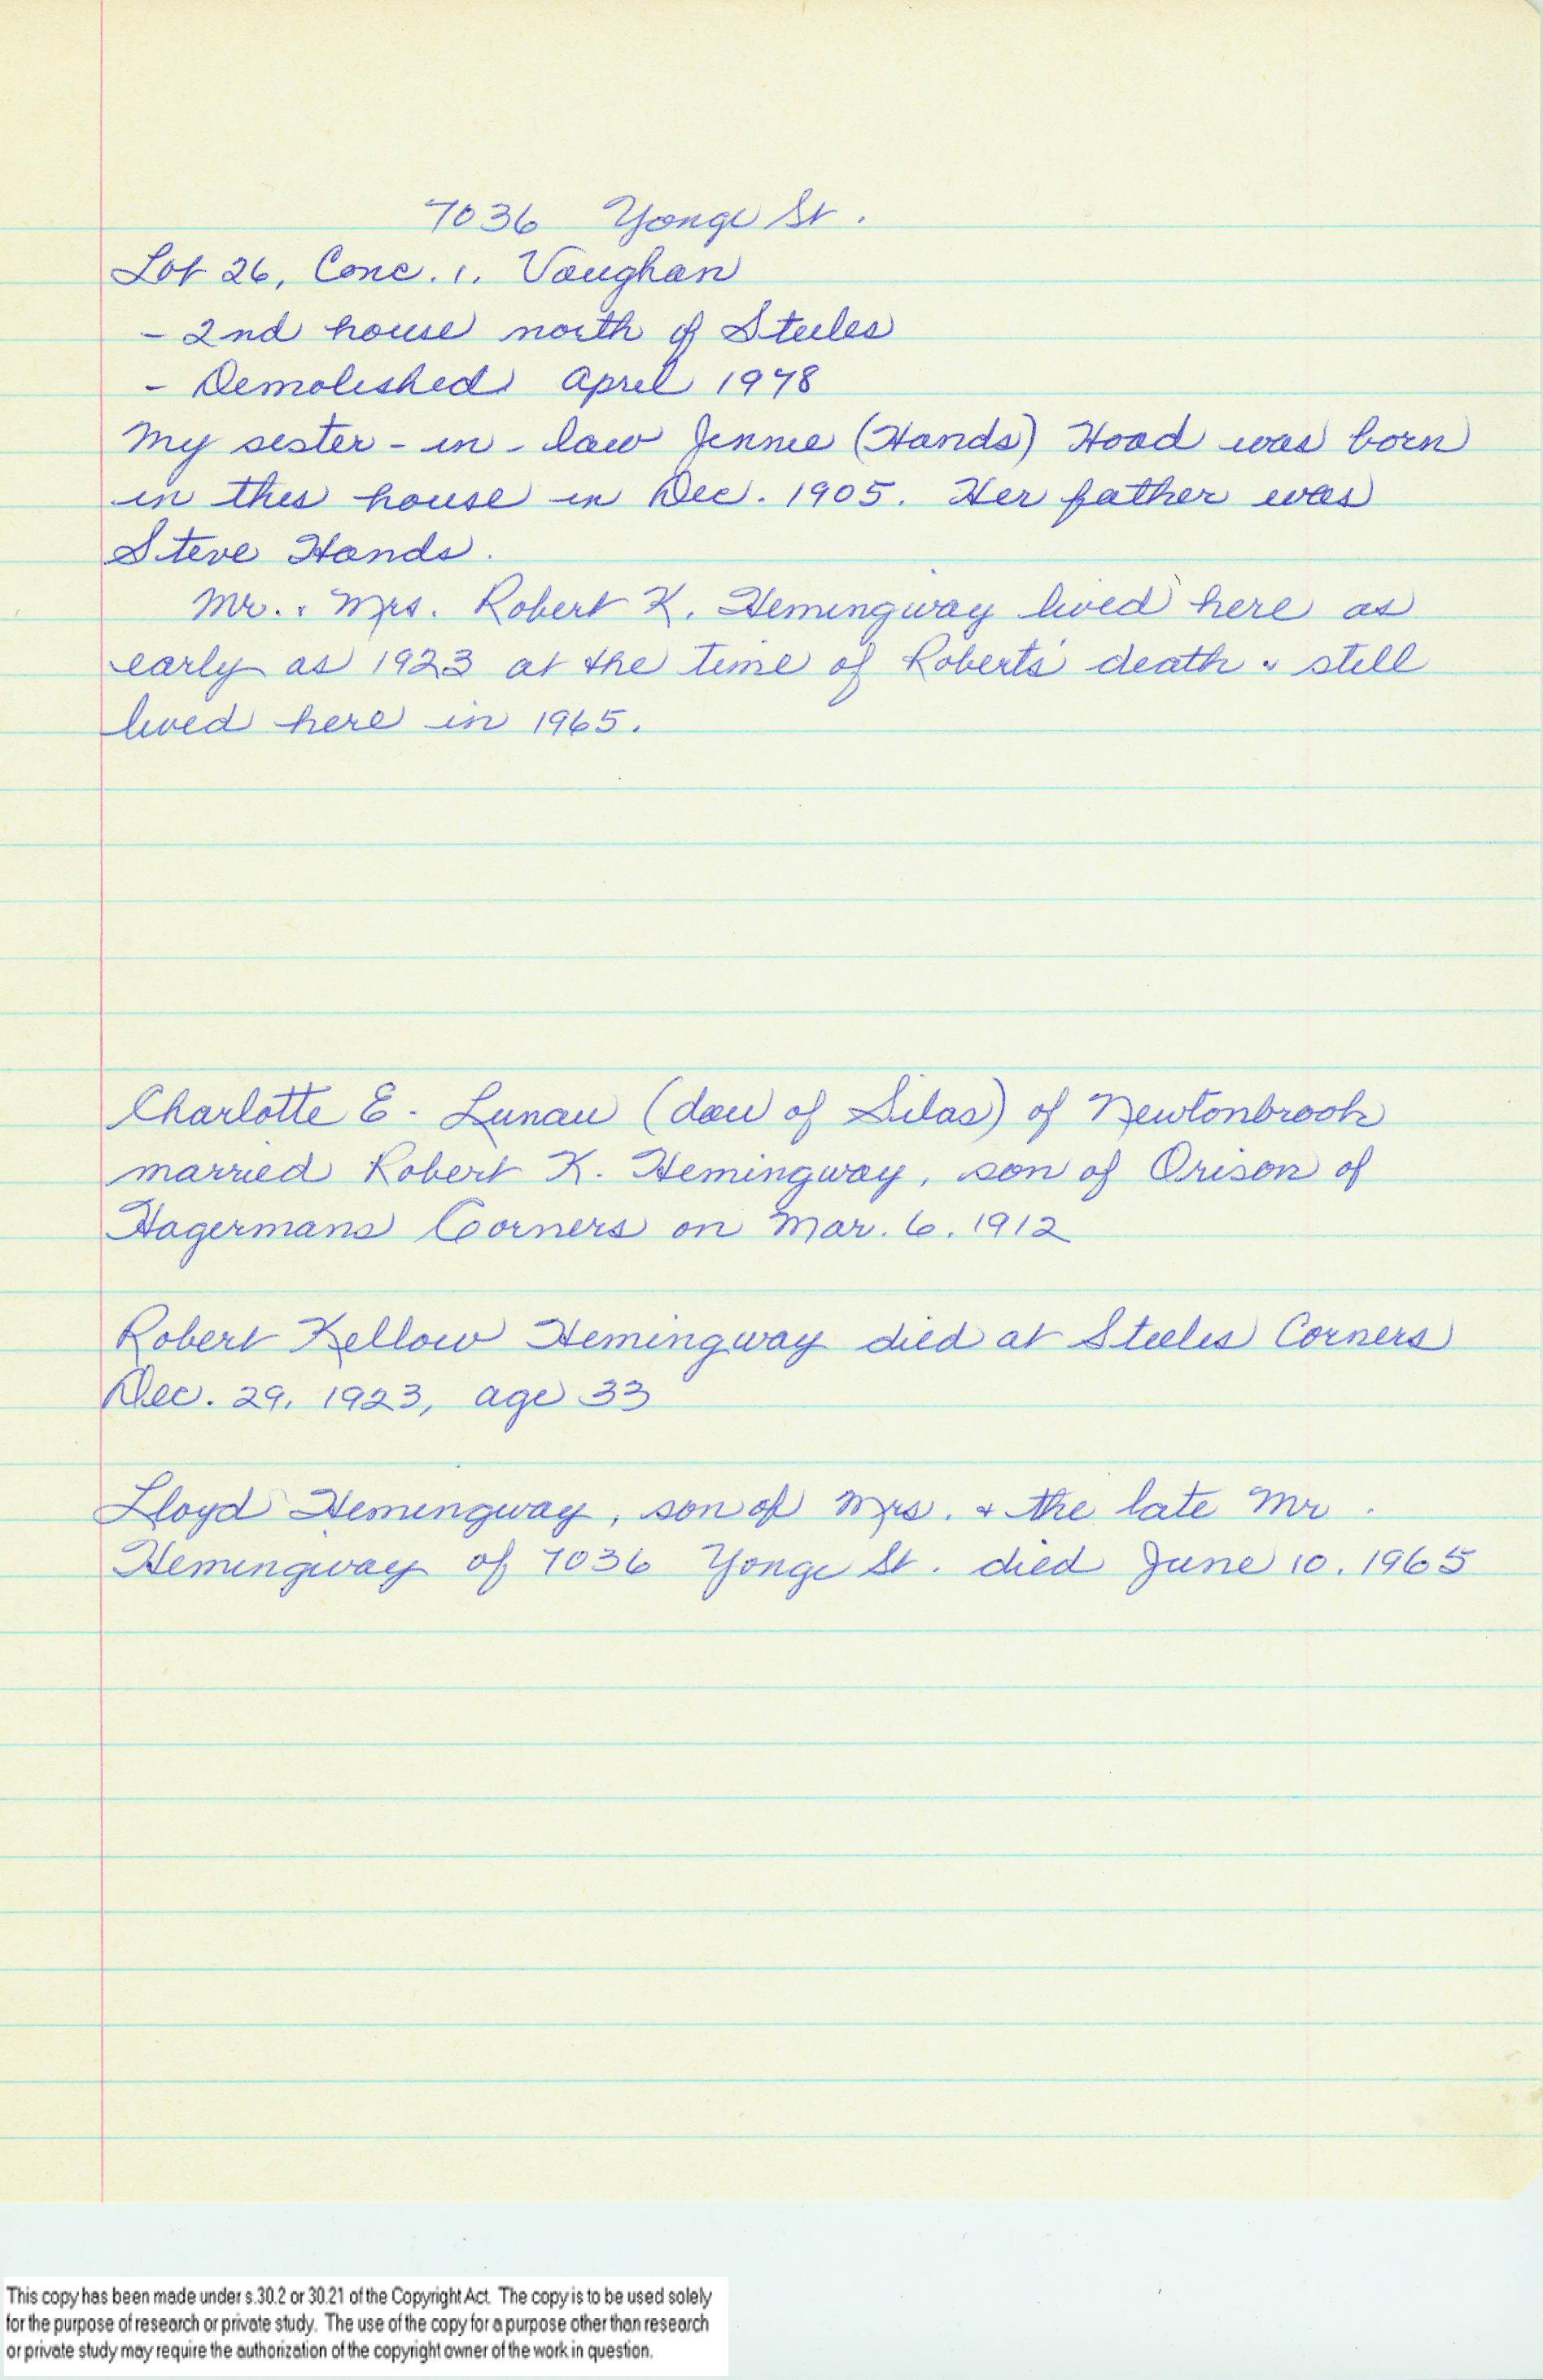 7036 Yonge St.
Lot 26, Conc. 1. Vaughan
- 2nd house north of Steeles
- Demolished April 1978
My sister-in-law Jennie (Hands) Hoad was born
in this house in Dec. 1905. Her father was
Steve Hands.
Mr. & Mrs. Robert K. Hemingway lived here as
early as 1923 at the time of Roberts' death & still
lived here in 1965.
Charlotte E. Lunau (dau of Silas) of Newtonbrook
married Robert K. Hemingway, son of Orison of
Hagermans Corners on Mar. 6. 1912
Robert Kellow Hemingway died at Steeles Corners
Dec. 29, 1923, age 33
Lloyd Hemingway, son of Mrs. & the late Mr.
Hemingway of 7036 Yonge St. died June 10, 1965
This copy has been made under s.30.2 or 30.21 of the Copyright Act. The copy is to be used solely
for the purpose of research or private study. The use of the copy for a purpose other than research
or private study may require the authorization of the copyright owner of the work in question.